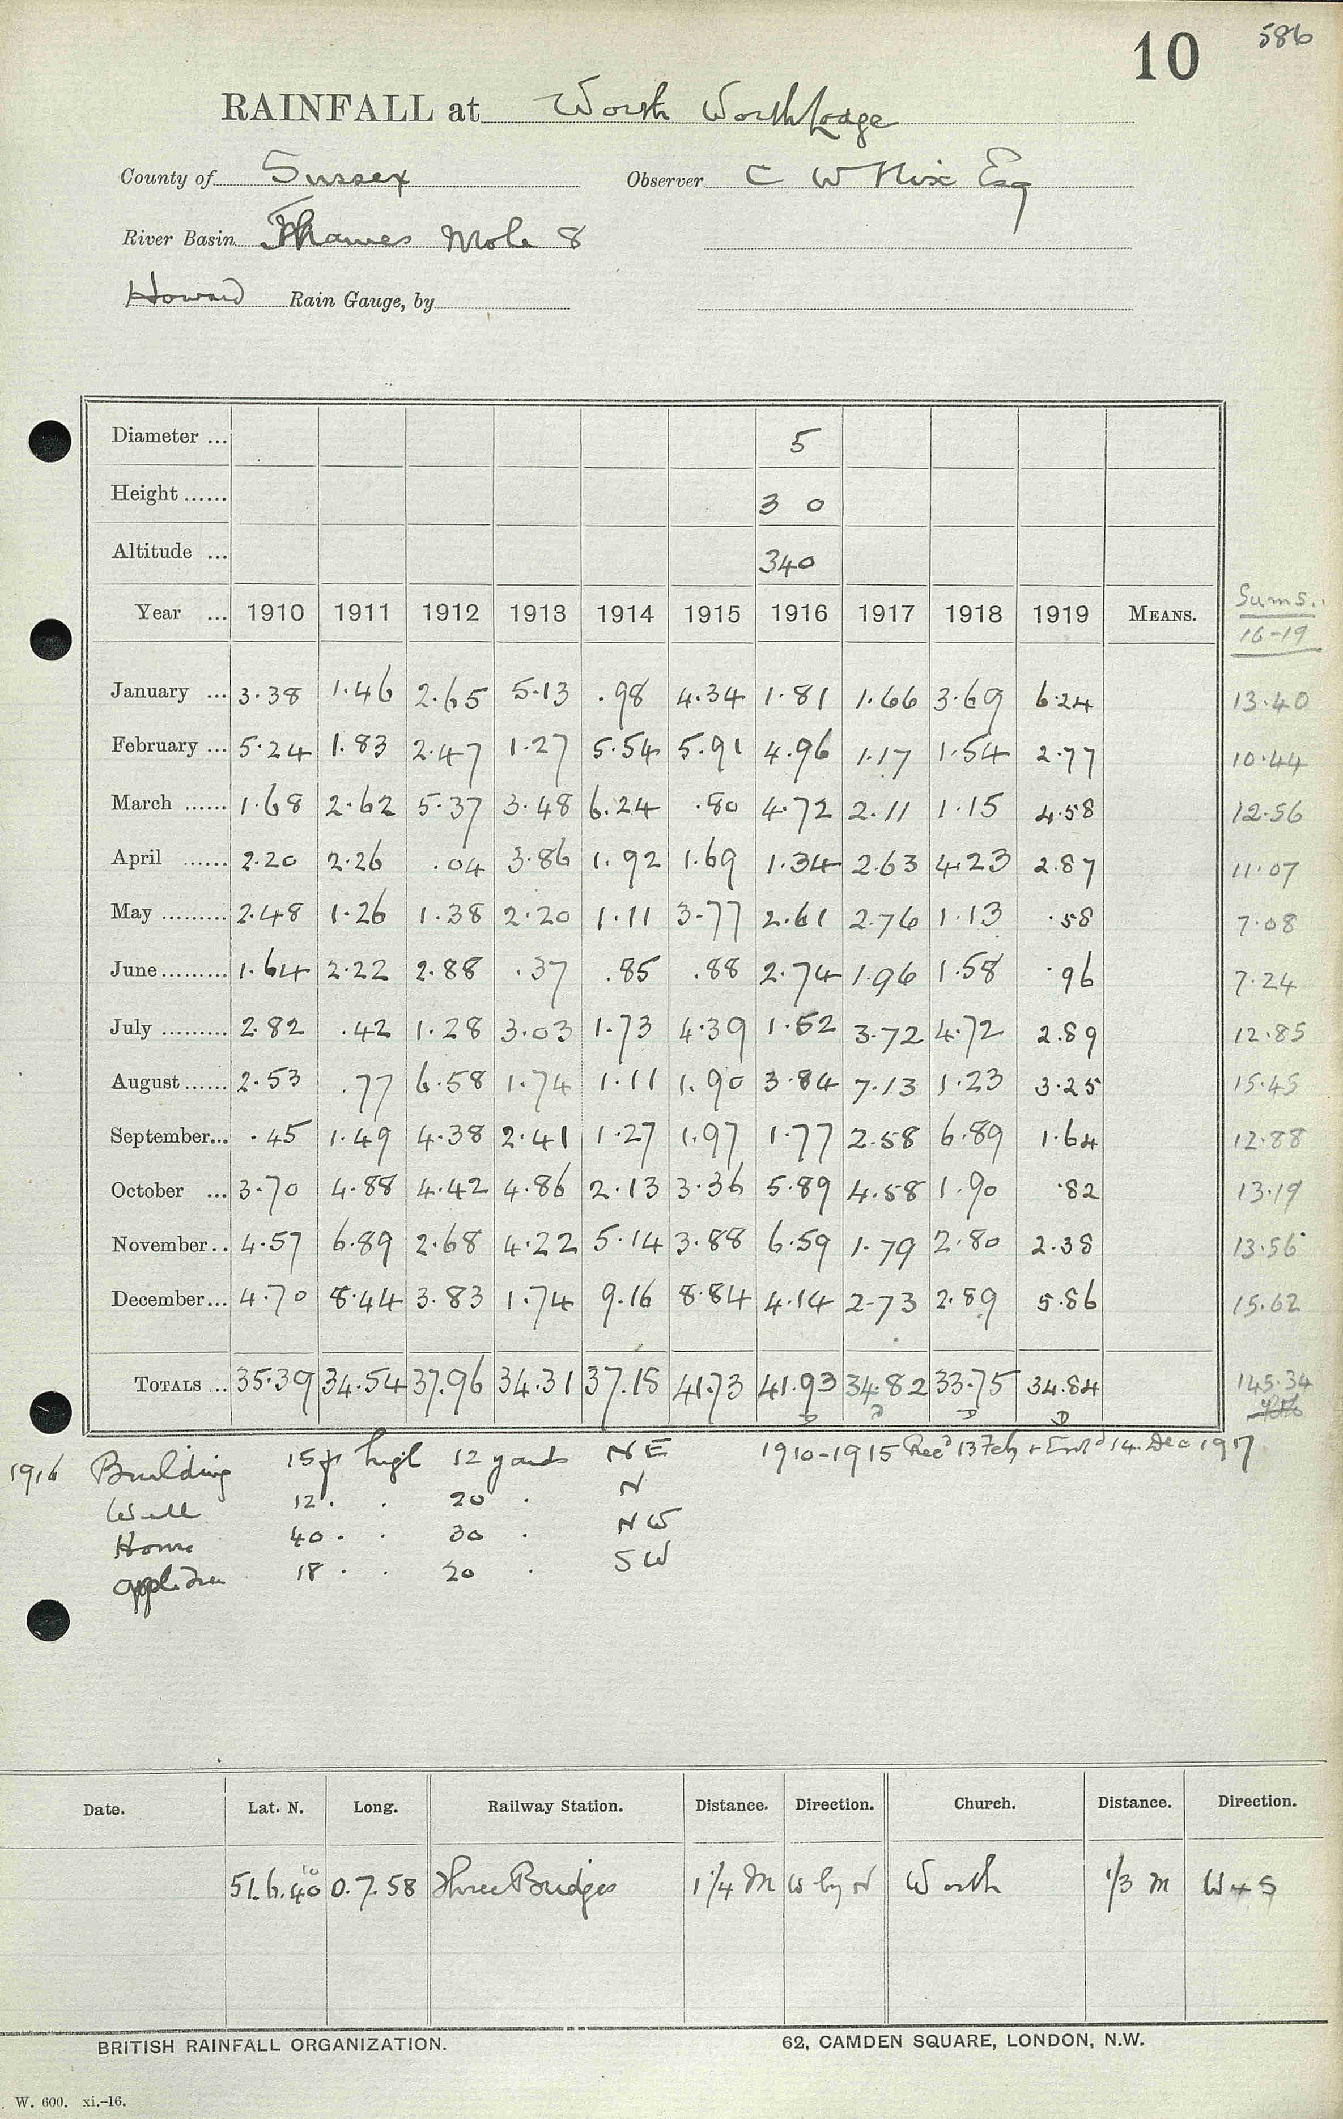 10 586
RAINFALL at Worth Worth Lodge
County of Sussex Observer C W Nix Esq
River Basin Thames Mole 8
Howard Rain Gauge, by
Diameter ... 5
Height ...... 3 0
Altitude ... 340
Year ... 1910 1911 1912 1913 1914 1915 1916 1917 1918 1919 MEANS. Sums. 16-19
January ... 3.38 1.46 2.65 5.13 .98 4.34 1.81 1.66 3.69 6.24 13.40
February ... 5.24 1.83 2.47 1.27 5.54 5.91 4.96 1.17 1.54 2.77 10.44
March ...... 1.68 2.62 5.37 3.48 6.24 .80 4.72 2.11 1.15 4.58 12.56
April ...... 2.20 2.26 .04 3.86 1.92 1.69 1.34 2.63 4.23 2.87 11.07
May ......... 2.48 1.26 1.38 2.20 1.11 3.77 2.61 2.76 1.13 .58 7.08
June ......... 1.64 2.22 2.88 .37 .85 .88 2.74 1.96 1.58 .96 7.24
July ......... 2.82 .42 1.28 3.03 1.73 4.39 1.52 3.72 4.72 2.89 12.85
August ...... 2.53 .77 6.58 1.74 1.11 1.90 3.84 7.13 1.23 3.25 15.45
September... .45 1.49 4.38 2.41 1.27 1.97 1.77 2.58 6.89 1.64 12.88
October ... 3.70 4.88 4.42 4.86 2.13 3.36 5.89 4.58 1.90 .82 13.19
November .. 4.57 6.89 2.68 4.22 5.14 3.88 6.59 1.79 2.80 2.38 13.56
December... 4.70 8.44 3.83 1.74 9.16 8.84 4.14 2.73 2.89 5.86 15.62
TOTALS .. 35.39 34.54 37.96 34.31 37.18 41.73 41.93 34.82 33.75 34.84 145.34
D D D D
1916 Building 15 ft high 12 yards NE 1910-1915 Recd 13 Feb + Entd 14 Dec 1917
Wall 12 . . 20 . N
House 40 . . 30 . NW
Apple tree 18 . . 20 . SW
Date. Lat. N. Long. Railway Station. Distance. Direction. Church. Distance. Direction.
51.6.40 10 0.7.58 Three Bridges 1 1/4 M W by N Worth 1/3 M W + S
BRITISH RAINFALL ORGANIZATION. 62, CAMDEN SQUARE, LONDON, N.W.
W. 600. xi.-16.